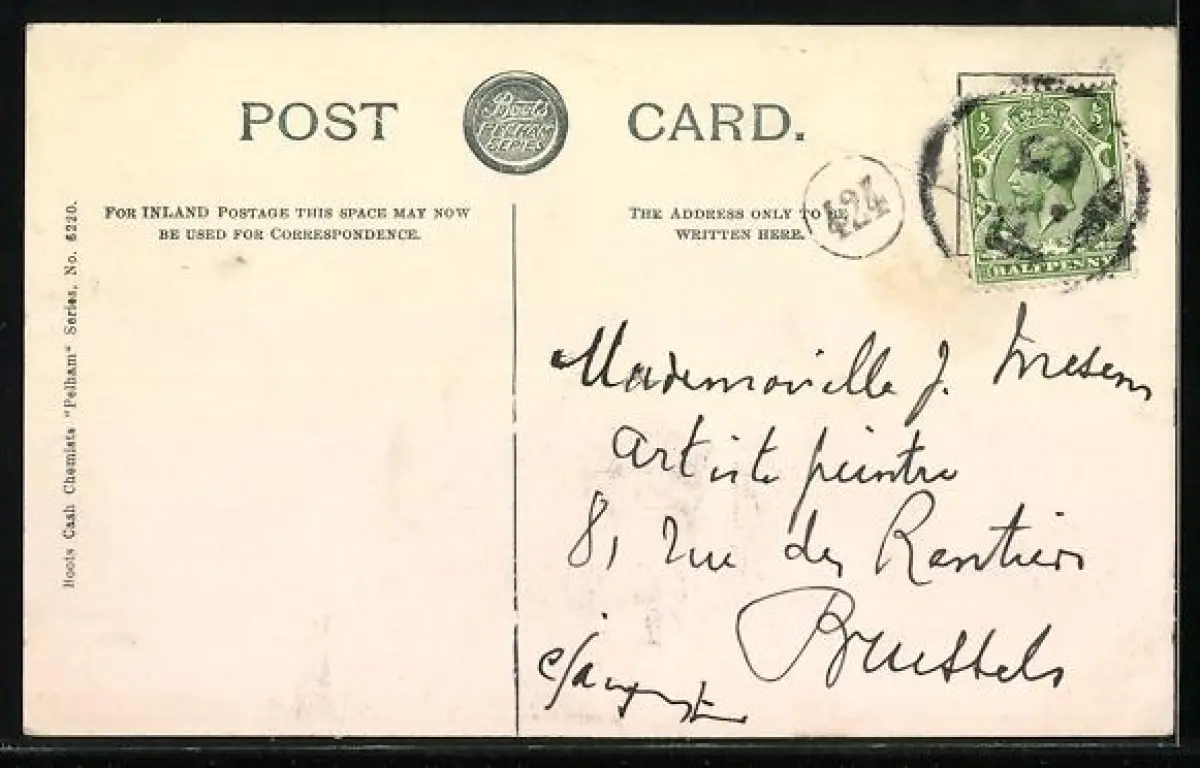 POST CARD.
Boots
PELHAM
SERIES
FOR INLAND POSTAGE THIS SPACE MAY NOW
BE USED FOR CORRESPONDENCE.
THE ADDRESS ONLY TO BE
WRITTEN HERE.
424
½ ½
HALFPENNY
Boots Cash Chemists "Pelham" Series, No. 6220.
Mademoiselle J.
Artiste peintre
81 Rue des Rentiers
Brussels